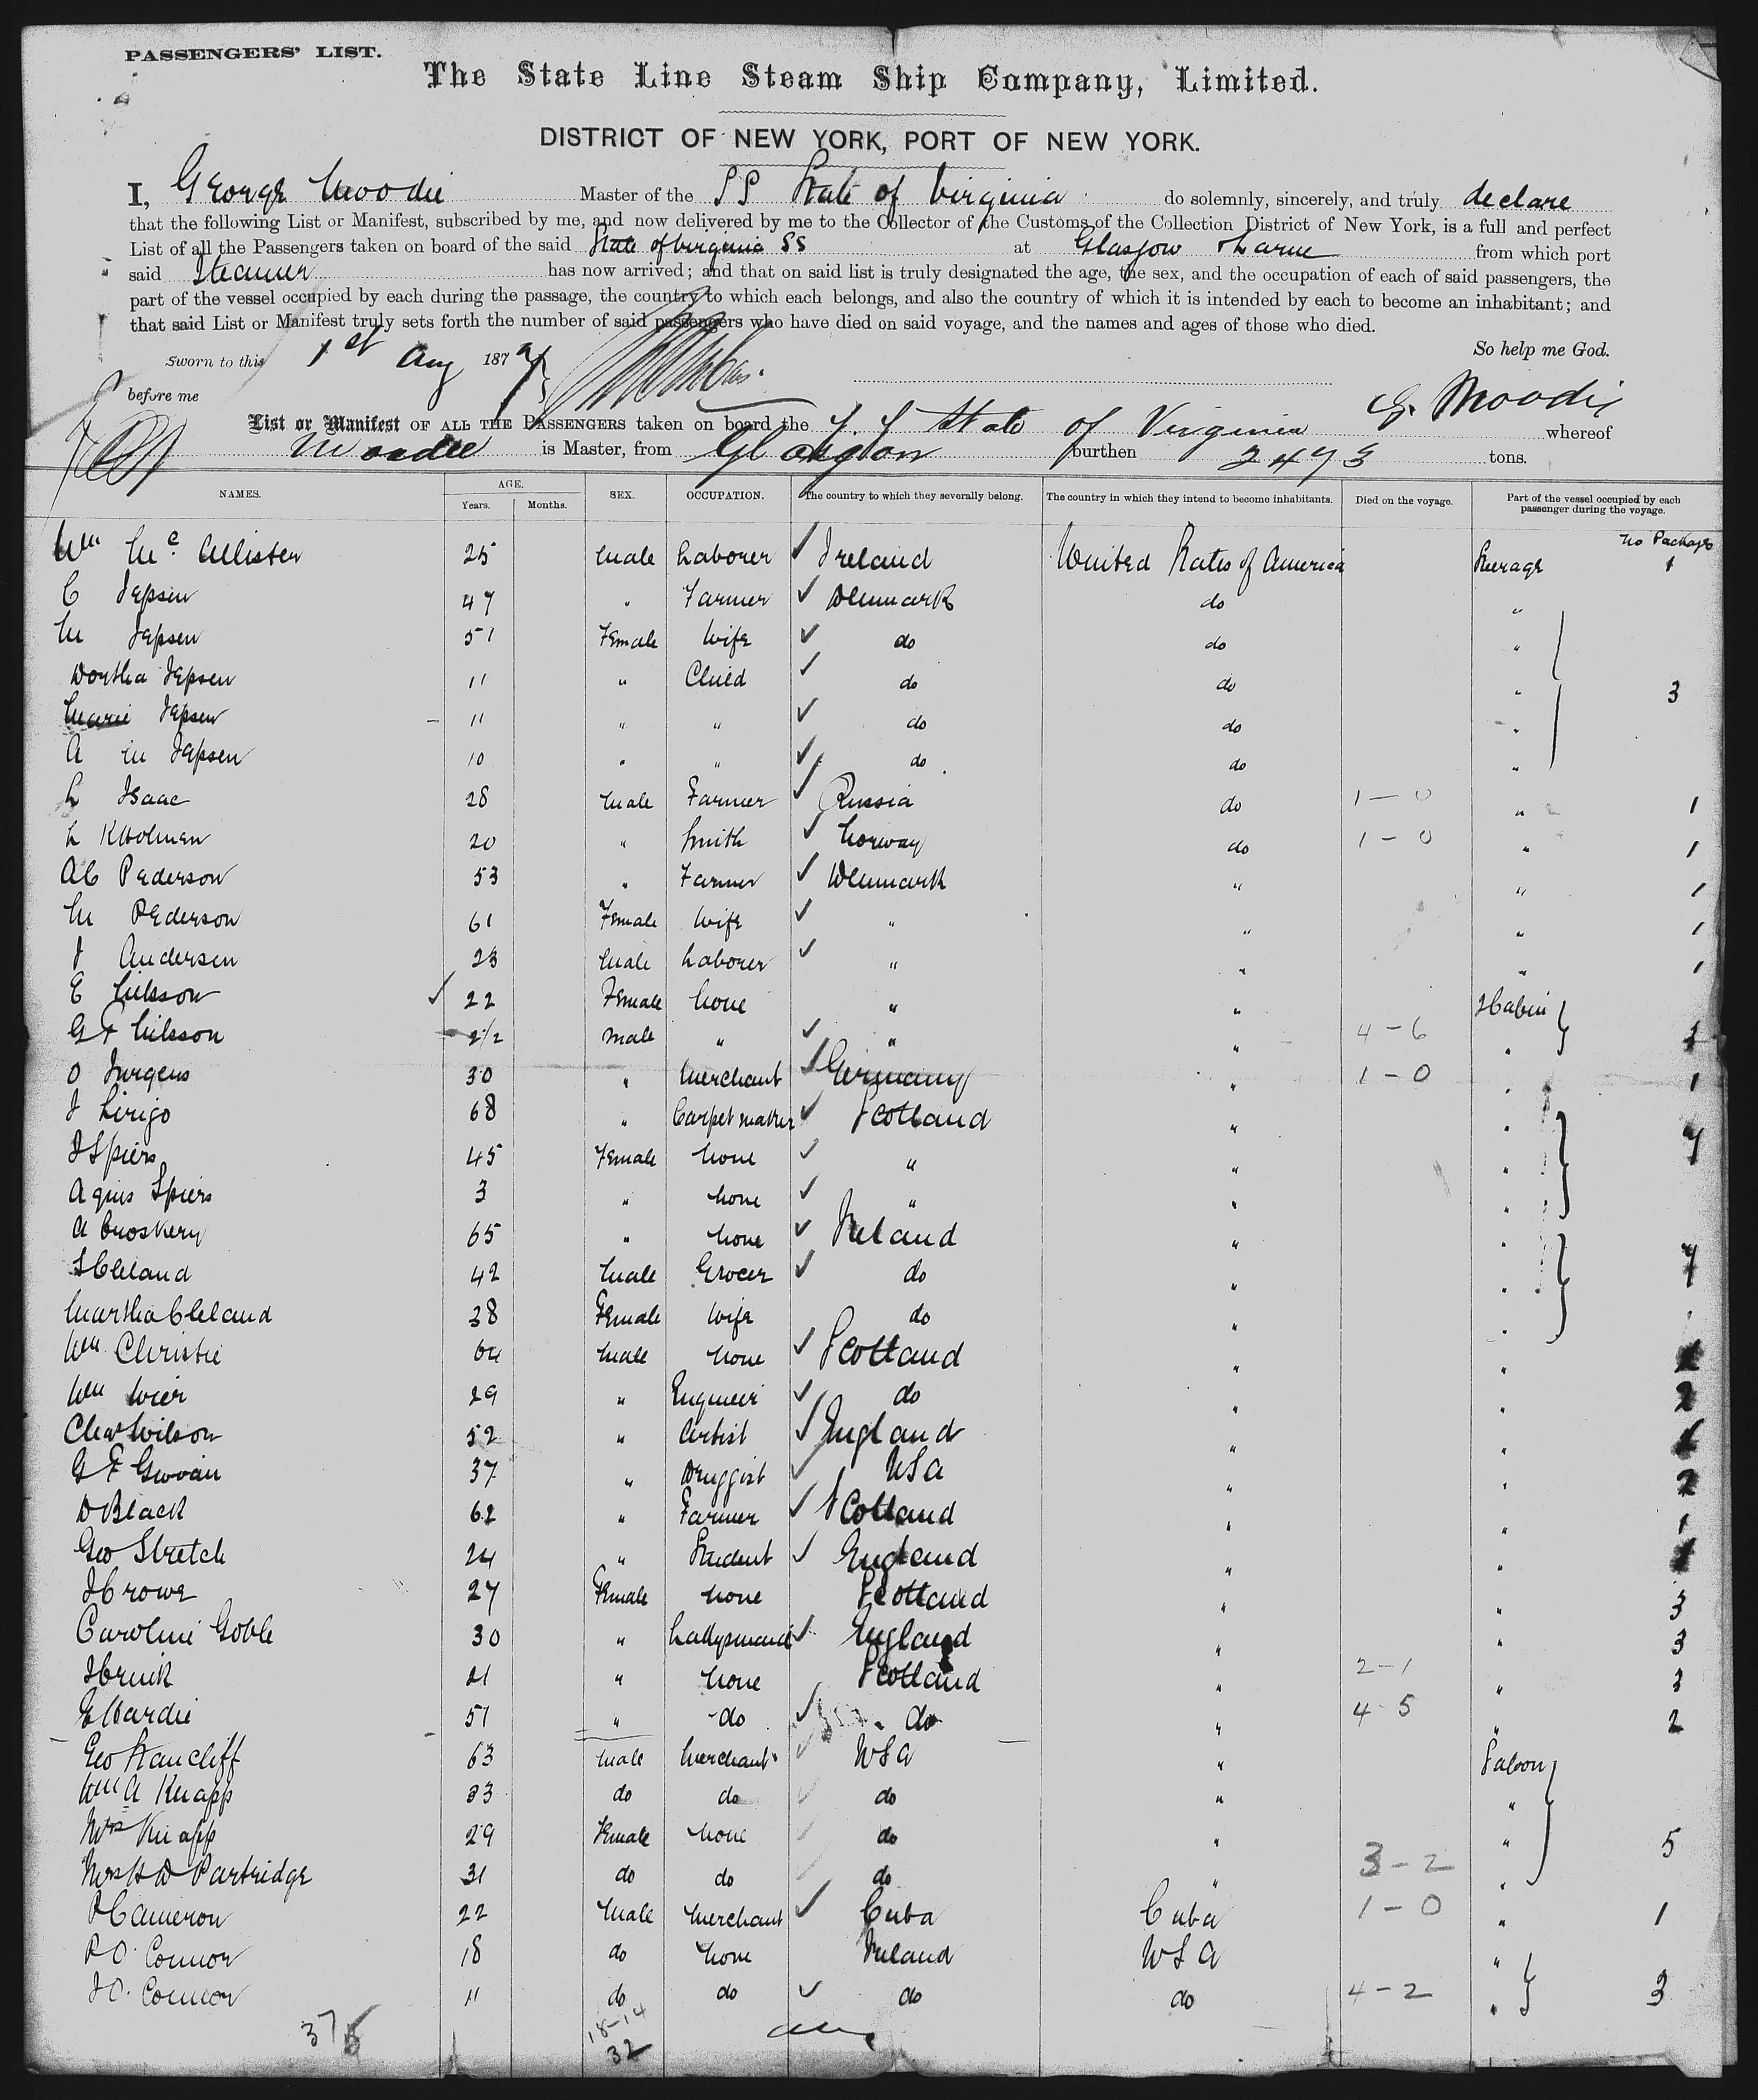 PASSENGERS' LIST.
The State Line Steam Ship Company, Limited.
DISTRICT OF NEW YORK, PORT OF NEW YORK.
I, George Moodie Master of the SS State of Virginia do solemnly, sincerely, and truly declare
that the following List or Manifest, subscribed by me, and now delivered by me to the Collector of the Customs of the Collection District of New York, is a full and perfect
List of all the Passengers taken on board of the said State of Virginia SS at Glasgow & Larne from which port
said Steamer has now arrived; and that on said list is truly designated the age, the sex, and the occupation of each of said passengers, the
part of the vessel occupied by each during the passage, the country to which each belongs, and also the country of which it is intended by each to become an inhabitant; and
that said List or Manifest truly sets forth the number of said passengers who have died on said voyage, and the names and ages of those who died.
So help me God.
Sworn to this 1st Aug 1879
before me
G. Moodie
List or Manifest OF ALL THE PASSENGERS taken on board the S. S State of Virginia whereof
Moodie is Master, from Glasgow burthen 2473 tons.
NAMES. AGE. Years. Months. SEX. OCCUPATION. The country to which they severally belong. The country in which they intend to become inhabitants. Died on the voyage. Part of the vessel occupied by each passenger during the voyage.
No Packages
Wm Mc Allister 25 Male Laborer Ireland United States of America Steerage 1
C Jepsen 47 " Farmer Denmark do "
M Jepsen 51 Female Wife do do "
Dorthea Jepsen 11 " Child do do " 3
Marie Jepsen 11 " " do do "
A M Jepsen 10 " " do do "
L Isaac 28 Male Farmer Russia do 1-0 " 1
L 20 " Smith Norway do 1-0 " 1
AC Pederson 53 " Farmer Denmark " " 1
M Pederson 61 Female Wife " " " 1
J Andersen 23 Male Laborer " " " 1
E Nilsson 22 Female None " " 2 Cabin
G F Nilsson 2 1/2 male " " " 4-6 "
O Jurgens 30 " Merchant Germany " 1-0 " 1
J 68 " Carpet maker Scotland " "
J Spiers 45 Female None " " "
Agnes Spiers 3 " None " " "
A Croskery 65 " None Ireland " "
J Cleland 42 Male Grocer do " "
Martha Cleland 38 Female Wife do " "
Wm Christie 64 Male None Scotland " "
Wm Wier 29 " Engineer do " " 2
Wilson 52 " Artist England " "
G F 37 " Druggist USA " " 2
D Black 62 " Farmer Scotland " " 1
Geo Stretch 24 " Student England " " 1
J Crowe 27 Female None Scotland " " 3
Caroline Goble 30 " Ladysmaid England " " 3
21 " None Scotland " 2-1 " 3
E Hardie 51 " do do " 4-5 " 2
Geo 63 Male Merchant USA " Saloon
Wm A Knapp 33 do do do " "
Mrs Knapp 29 Female None do " " 5
Mrs H D Partridge 31 do do do " 3-2 "
P Cameron 22 Male Merchant Cuba Cuba 1-0 " 1
P O'Connor 18 do None Ireland USA "
J O'Connor 11 do do do do 4-2 " 3
37
18-14
32